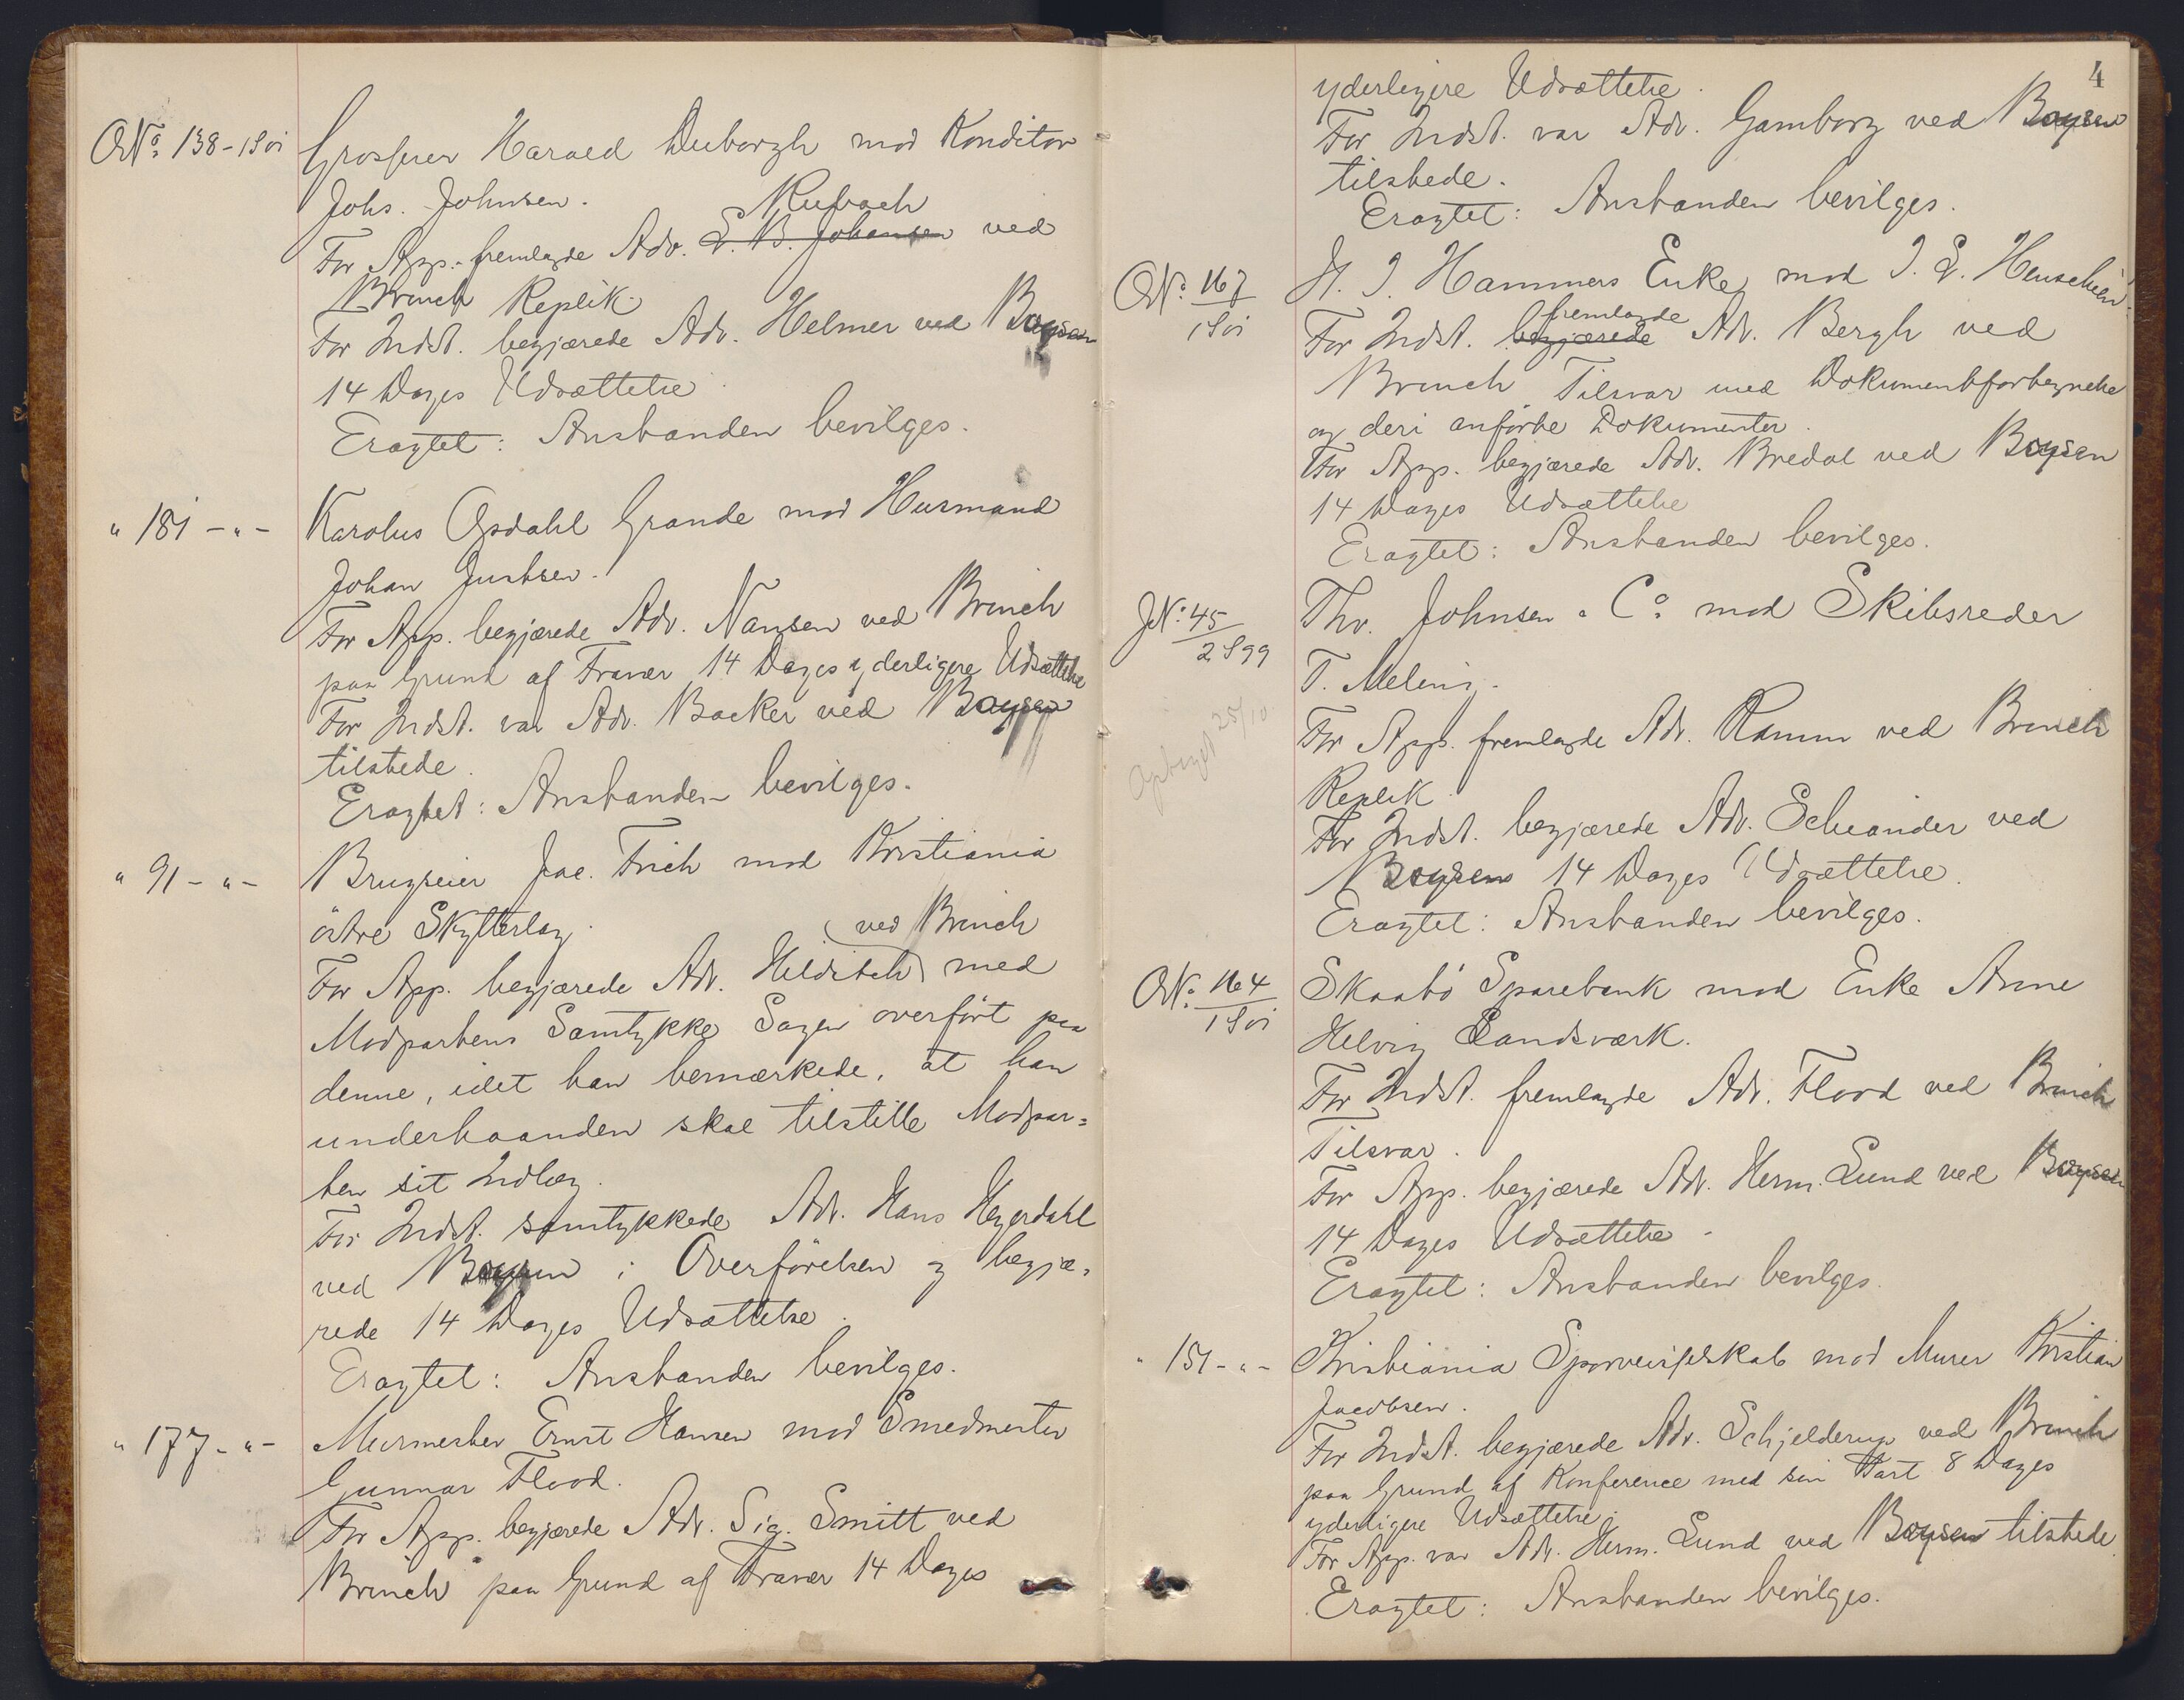 ONº 138-1S01
Grosserer Harald Duborgh mod Konditor
Johs. Johnsen.
Rubach
For App. fremlagde Adv. L. B. Johansen ved
Brinch Replik.
For Indst. begjærede Adv. Helmer ved Boysen
14 Dages Udsættelse
Eragtet: Anstanden bevilges.
" 181 - " -
Karolus Opdahl Grande mod Husmand
Johan Justsen.
For App. begjærede Adv. Nansen ved Brinch
paa Grund af Fravær 14 Dages yderligere Udsættelse
For Indst. var Adv. Backer ved Boysen
tilstede.
Eragtet: Anstanden bevilges.
" 91 - " -
Brugseier Jac. Frich mod Kristiania
östre Skytterlag.
ved Brinch
For App. begjærede Adv. Hilditch med
Modpartens Samtykke Sagen overført paa
denne, idet han bemærkede, at han
underhaanden skal tilstille Modpar=
ten sit Indlæg.
For Indst. samtykkede Adv. Hans Heyerdahl
ved Boysen i Overførelsen og begjæ=
rede 14 Dages Udsættelse.
Eragtet: Anstanden bevilges.
" 177 - " -
Murmester Ernst Hansen mod Smedmester
Gunnar Flood.
For App. begjærede Adv. Sig. Smitt ved
Brinch paa Grund af Fravær 14 Dages
4
yderligere Udsættelse.
For Indst. var Adv. Gamborg ved Boysen
tilstede.
Eragtet: Anstanden bevilges.
ONº 167
1S01
H. J. Hammers Enke mod J. L. Henschien.
fremlagde
For Indst. begjærede Adv. Bergh ved
Brinch Tilsvar med Dokumentfortegnelse
og deri anførte Dokumenter.
For App. begjærede Adv. Bredal ved Boysen
14 Dages Udsættelse
Eragtet: Anstanden bevilges.
JNº 45
2S99
Thv. Johnsen & Cº mod Skibsreder
T. Meling.
25/10
For App. fremlagde Adv. Ramm ved Brinch
Replik.
For Indst. begjærede Adv. Scheander ved
Boysen 14 Dages Udsættelse.
Eragtet: Anstanden bevilges.
ONº 164
1S01
Skaabö Sparebank mod Enke Anne
Helvig Landsværk.
For Indst. fremlagde Adv. Flood ved Brinch
Tilsvar.
For App. begjærede Adv. Herm. Lund ved Boysen
14 Dages Udsættelse.
Eragtet: Anstanden bevilges.
" 151 - " -
Kristiania Sporveisselskab mod Murer Kristian
Jacobsen.
For Indst. begjærede Adv. Schjelderup ved Brinch
paa Grund af Konference med sin Part 8 Dages
yderligere Udsættelse.
For App. var Adv. Herm. Lund ved Boysen tilstede.
Eragtet: Anstanden bevilges.